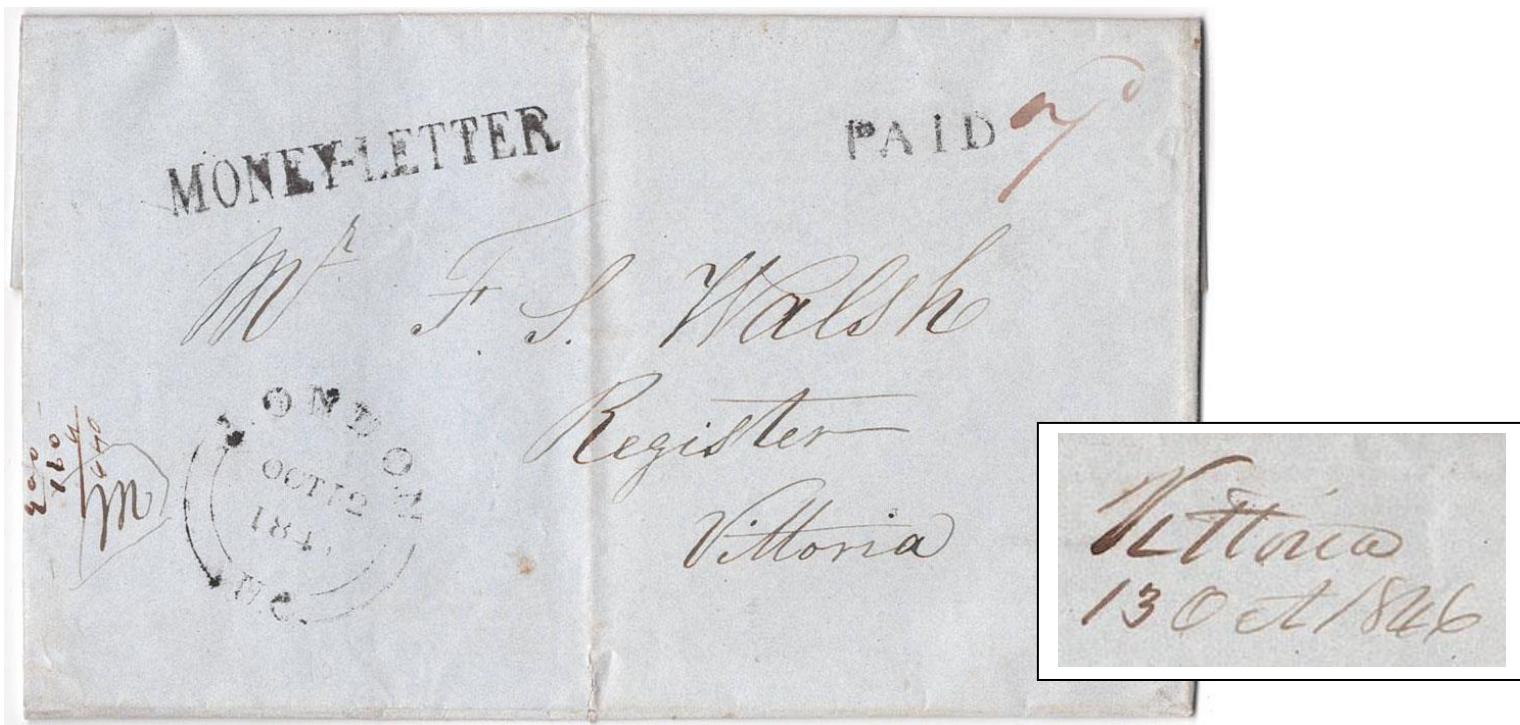 MONEY-LETTER
PAID 7d
Mr F. S. Walsh
Register
Vittoria
LONDON
OCT 12
184
U.C.
Vittoria
13 Oct 1846